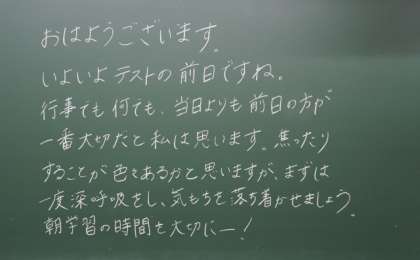 おはようございます。
いよいよテストの前日ですね。
行事でも何でも、当日よりも前日の方が
一番大切だと私は思います。焦ったり
することが色々あるかと思いますが、まずは
一度深呼吸をし、気もちを落ち着かせましょう。
朝学習の時間を大切にー!